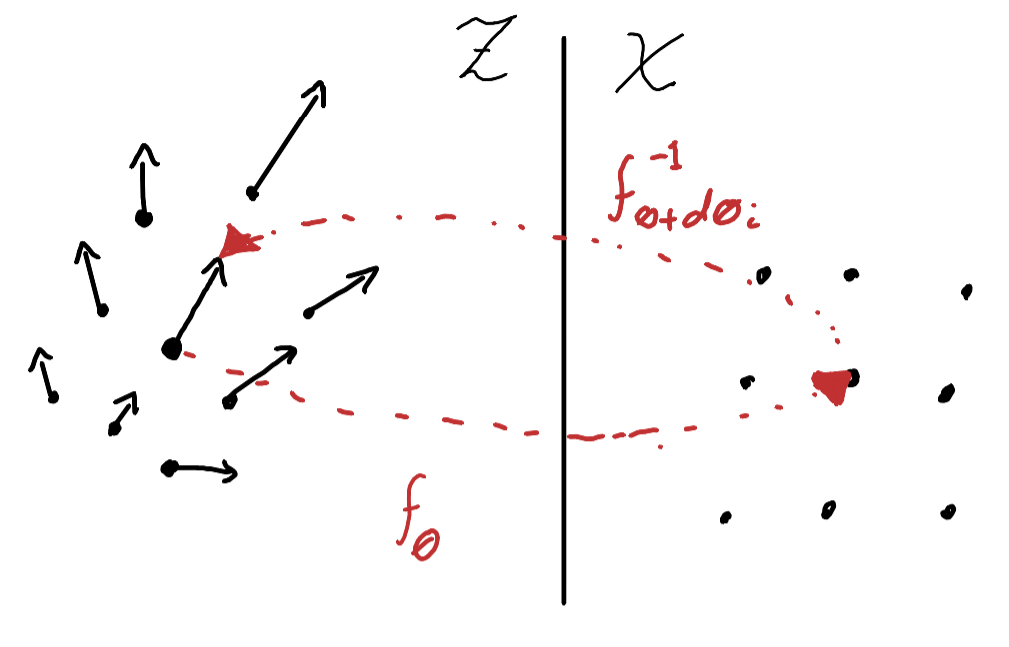 Z
X
f⁻¹_θ+dθᵢ
f_θ